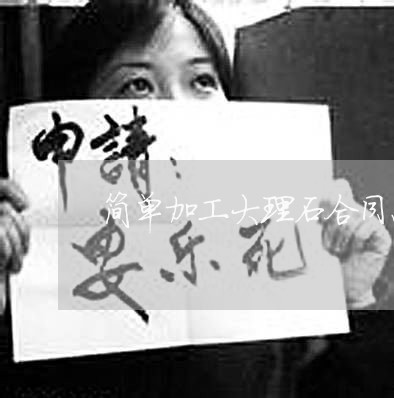 申請：
简单加工大理石合同、
安乐死